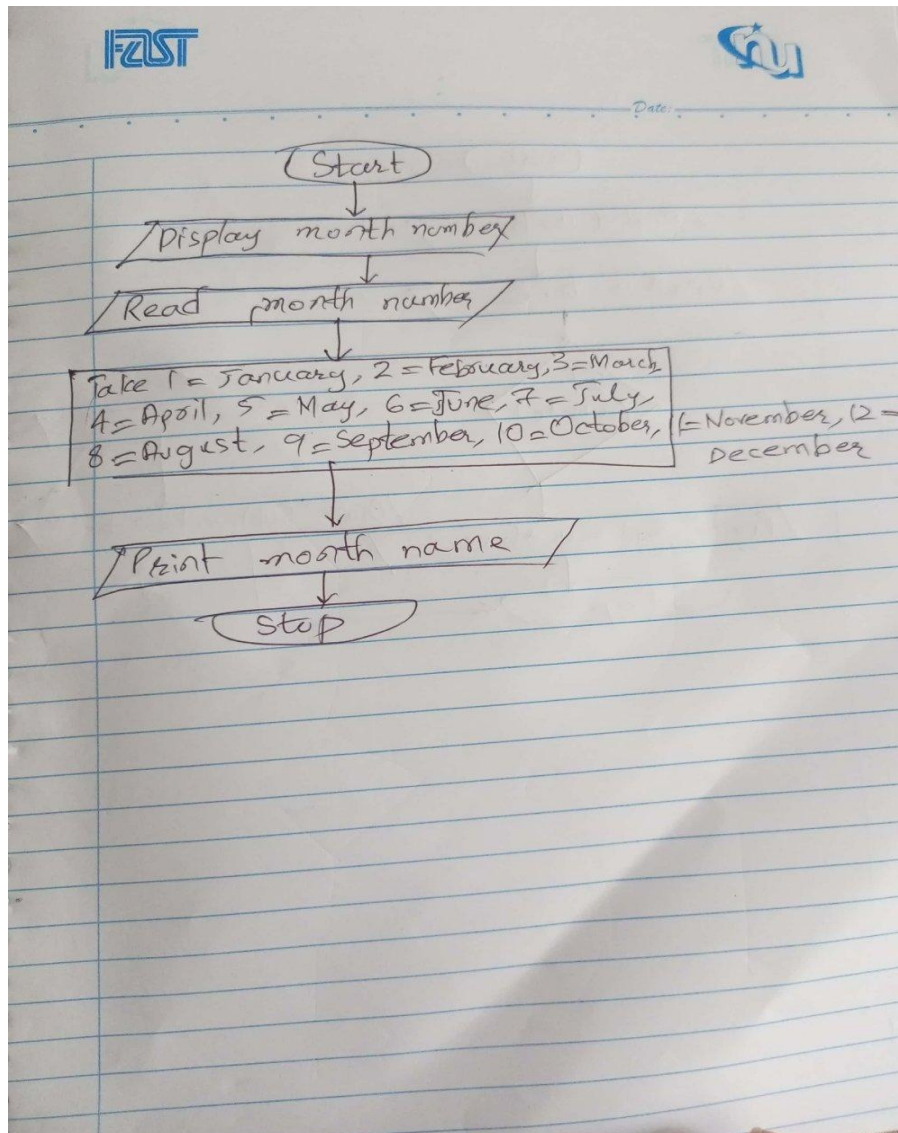 FAST
nu
Date:
Start
Display month number
Read month number
Take 1 = January, 2 = February, 3 = March
4 = April, 5 = May, 6 = June, 7 = July,
8 = August, 9 = September, 10 = October, 11 = November, 12 =
December
Print month name
Stop